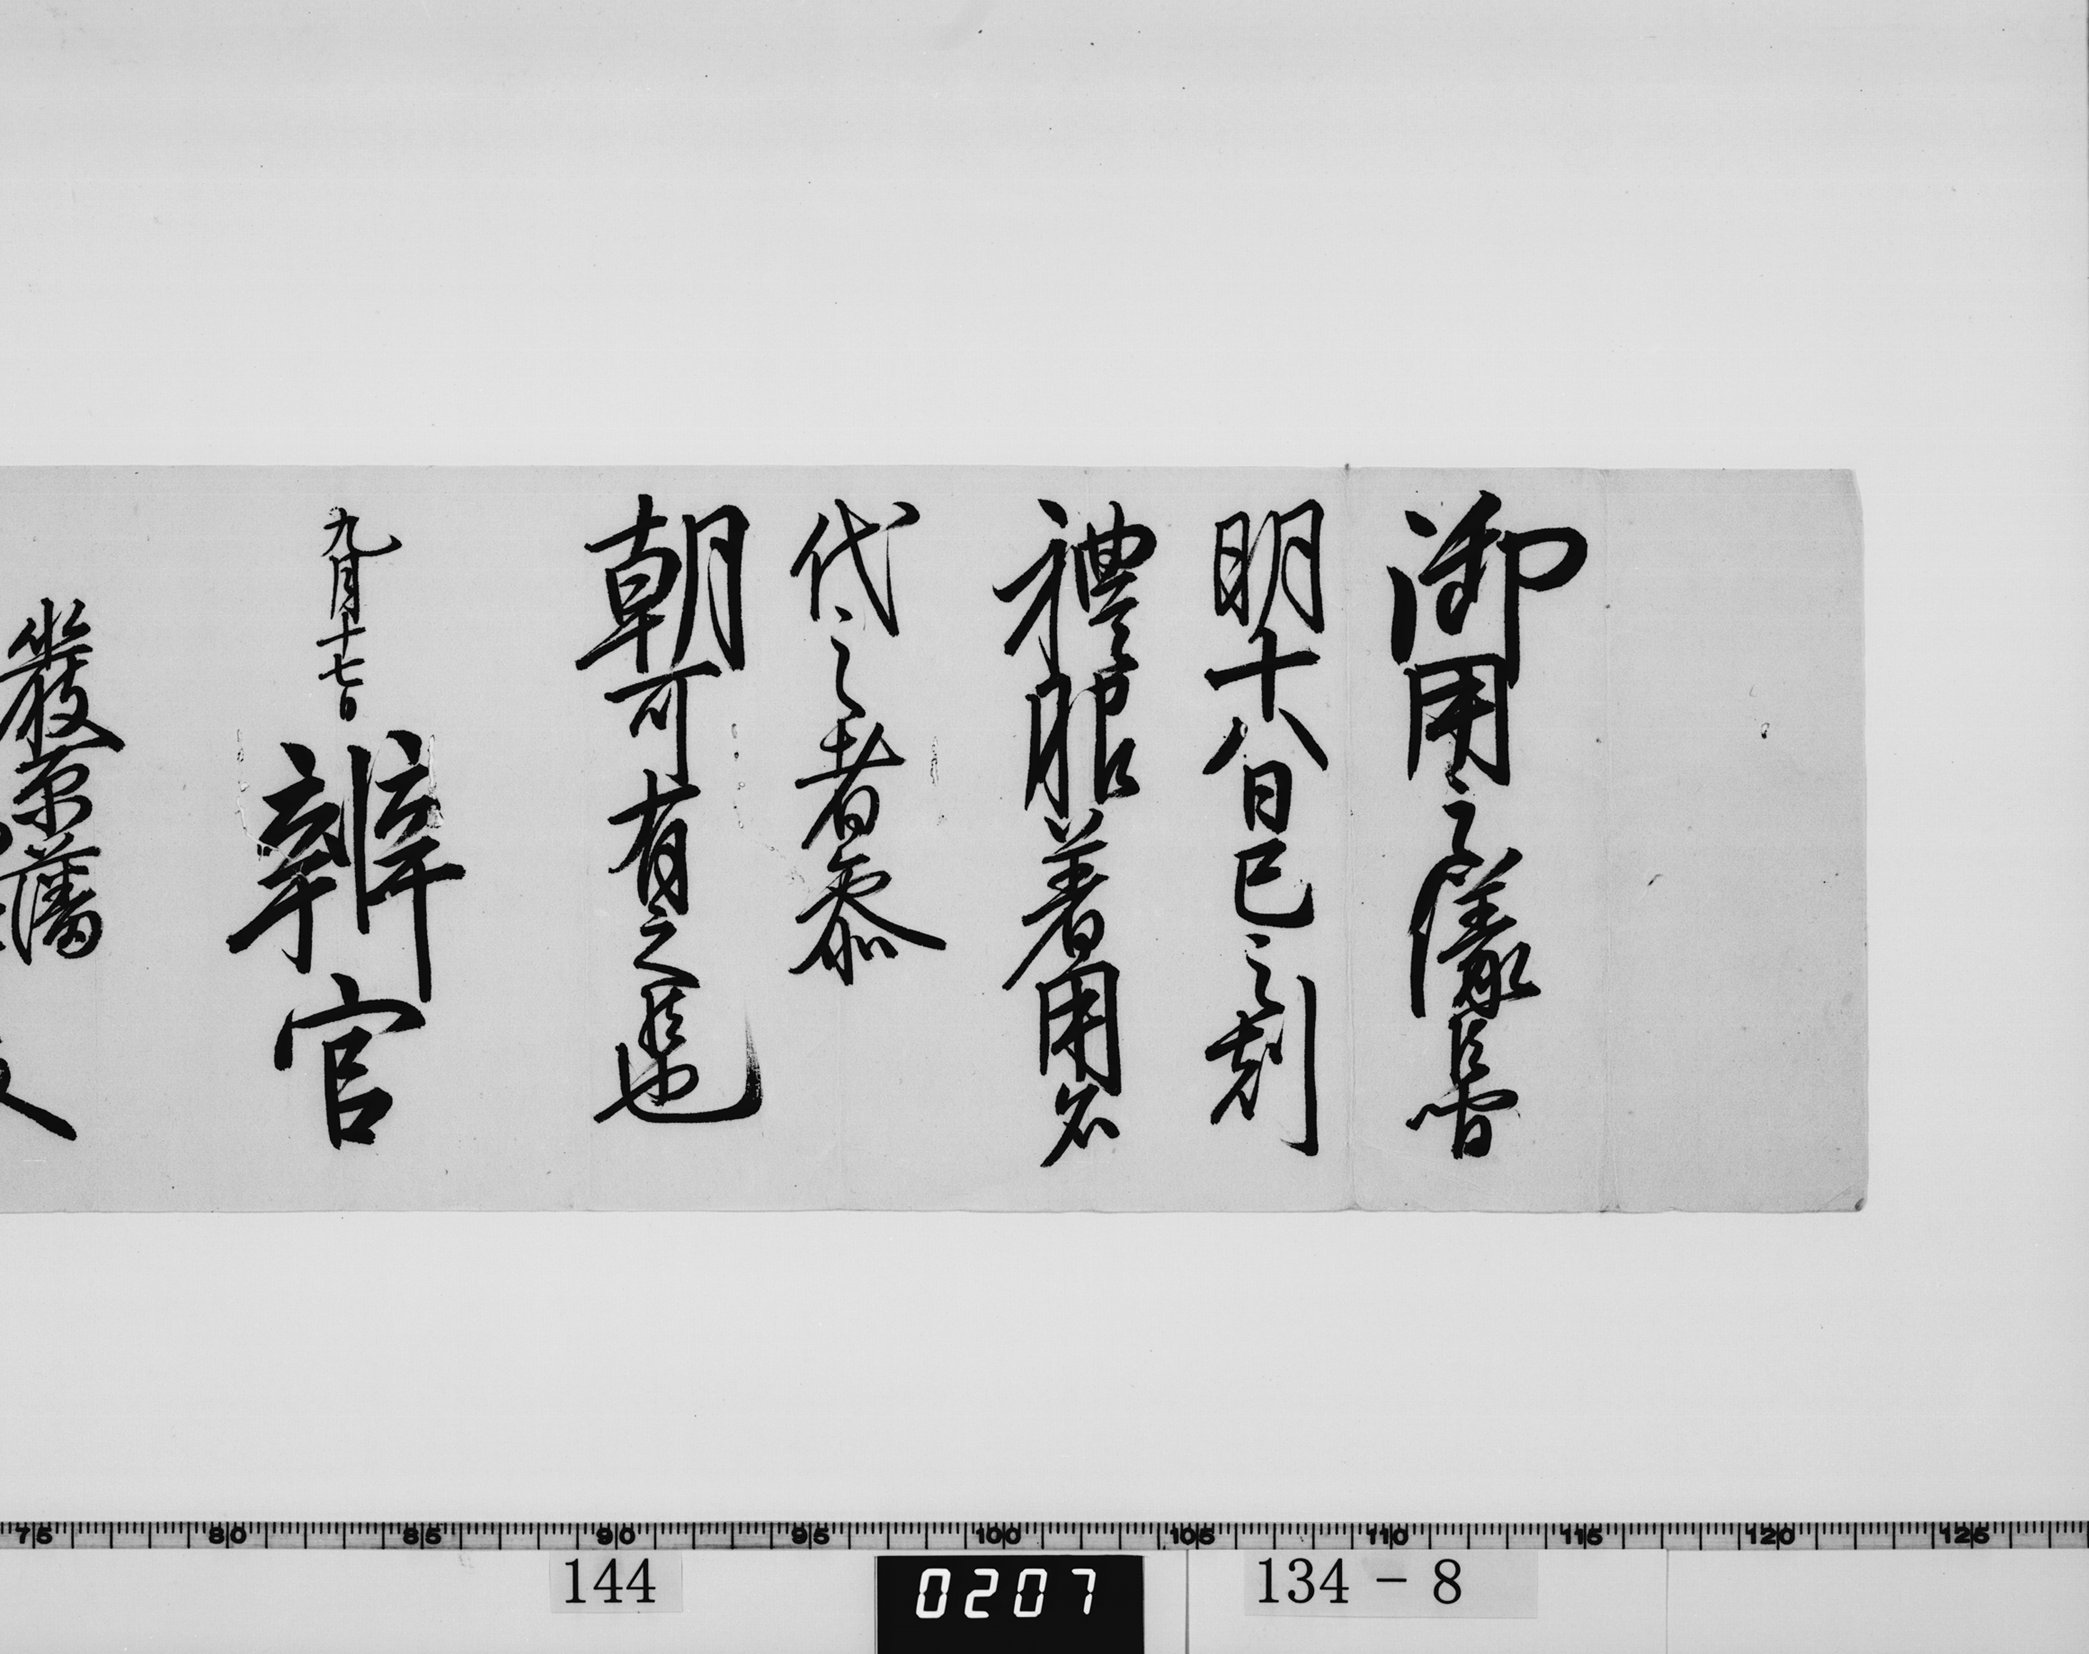 御用之儀候間
明十八日巳之刻
禮服着用名
代之者参
朝可有之候也
九月十七日
辨官
嚴原藩
75 80 85 90 95 100 105 110 115 120 125
144
0207
134 - 8